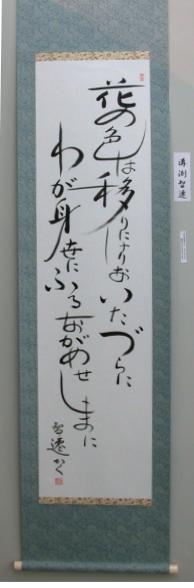 花の色は移りにけりないたづらに
わが身世にふるながめせしまに
智遠かく
溝渕智遠